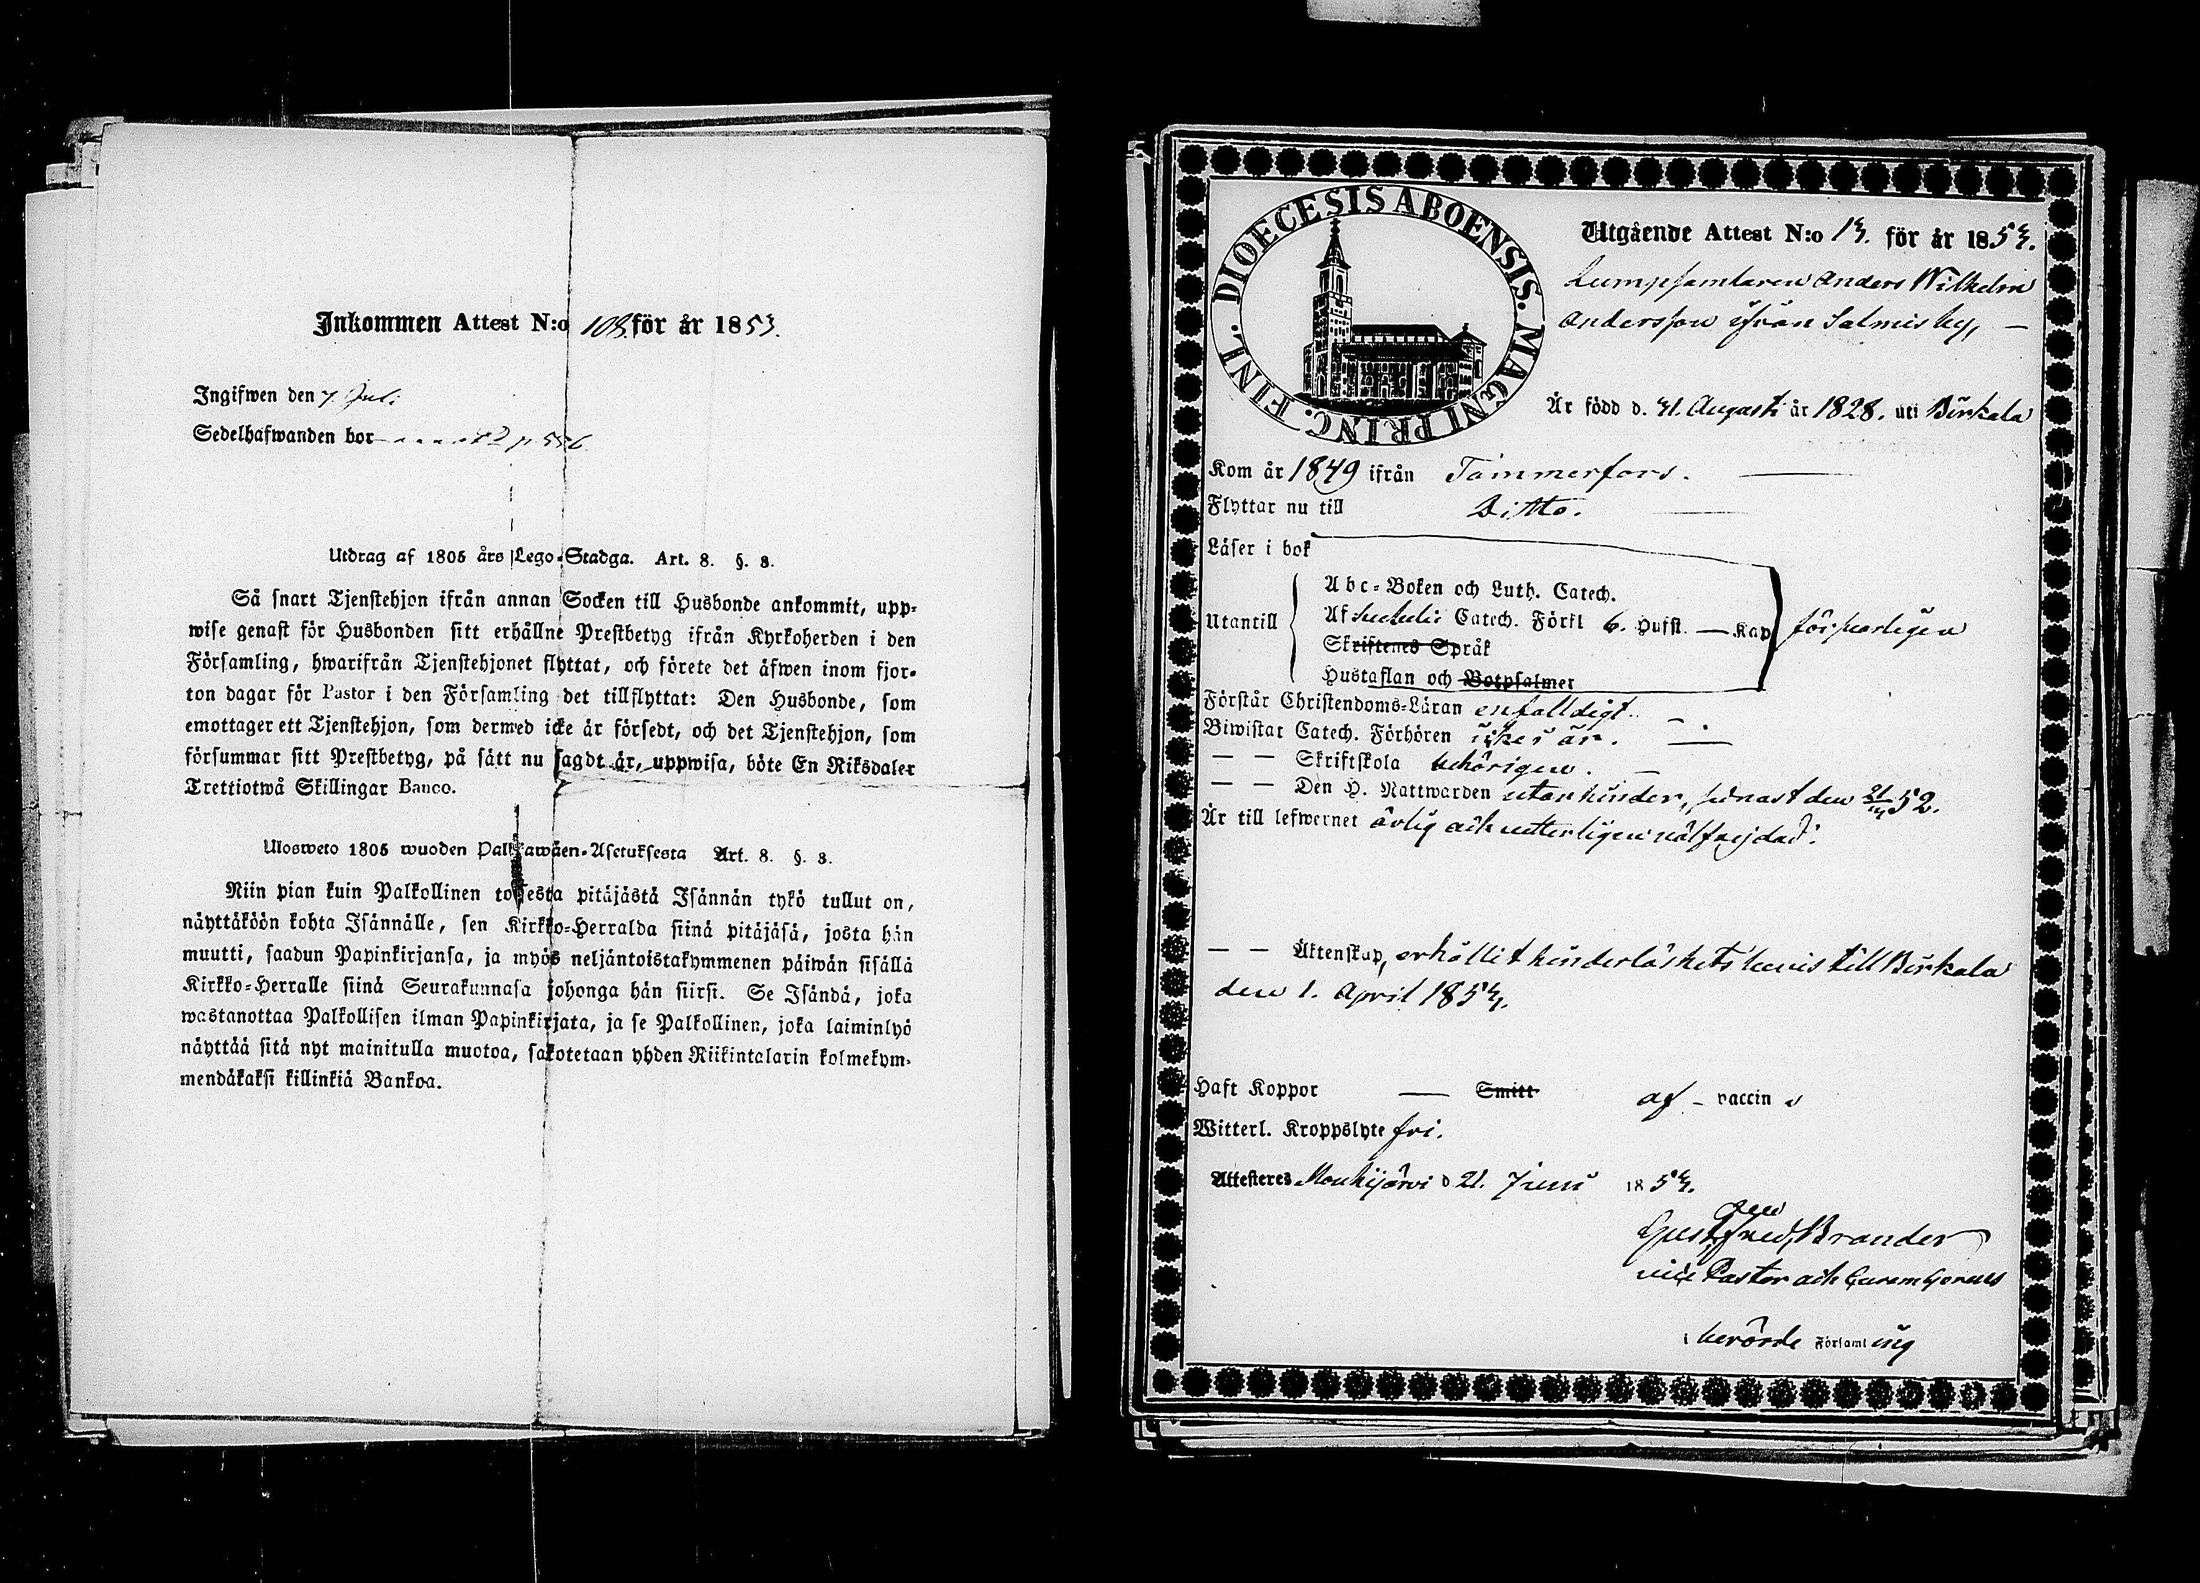 Inkommen Attest N:o 108. för år 1853.
Ingifwen den 7. Juli
Sedelhafwanden bor 2 p 556
Utdrag af 1805 års Lego-Stadga. Art. 8. §. 8.
Så snart Tjenstehjon ifrån annan Socken till Husbonde ankommit, upp-
wise genast för Husbonden sitt erhållne Prestbetyg ifrån Kyrkoherden i den
Församling, hwarifrån Tjenstehjonet flyttat, och förete det äfwen inom fjor-
ton dagar för Pastor i den Församling det tillflyttat: Den Husbonde, som
emottager ett Tjenstehjon, som dermed icke är försedt, och det Tjenstehjon, som
försummar sitt Prestbetyg, på sätt nu sagdt är, uppwisa, böte En Riksdaler
Trettiotwå Skillingar Banco.
Ulosweto 1805 wuoden Palkkawäen-Asetuksesta Art. 8. §. 8.
Niin pian kuin Palkollinen toisesta pitäjästä Isännän tykö tullut on,
näyttäköön kohta Isännälle, sen Kirkko-Herralda siinä pitäjäsä, josta hän
muutti, saadun Papinkirjansa, ja myös neljäntoistakymmenen päiwän sisällä
Kirkko-Herralle siinä Seurakunnasa johonga hän siirsi. Se Isändä, joka
wastanottaa Palkollisen ilman Papinkirjata, ja se Palkollinen, joka laiminlyö
näyttää sitä nyt mainitulla muotoa, sakotetaan yhden Riikintalarin kolmekym-
mendäkaksi killinkiä Bankoa.
DIOECESIS ABOENSIS. MAGNI PRINC. FINL.
Utgående Attest N:o 13. för år 1853.
Lumpsamlaren Anders Wilhelm
Andersson ifrån Salmis by,
Är född d. 31. Augusti år 1828. uti Birkala
Kom år 1849 ifrån Tammerfors.
Flyttar nu till Ditto.
Läser i bok
Abc-Boken och Luth. Catech.
Utantill Af Svebelii Catech. Förkl 6. Hufst. — Kap försvarligen
Skriftenes Språk
Hustaflan och Botpsalmer
Förstår Christendoms-Läran enfalldigt.
Biwistat Catech. Förhören sikes år.
— — Skriftskola behörigen.
— — Den H. Nattwarden utan hinder, senast den 52.
Är till lefwernet ärlig och witterligen wälfrejdad.
— — Äktenskap, erhållit hinderlöshets bevis till Birkala
den 1. April 1853.
Haft Koppor — Smitt af - vaccin
Witterl. Kroppslyte fri.
Attesteras Mouhijärvi d 21. Juni 1853.
Gust. Fred. Brander
vice Pastor och Curam Gerens
i berörde Församl ing